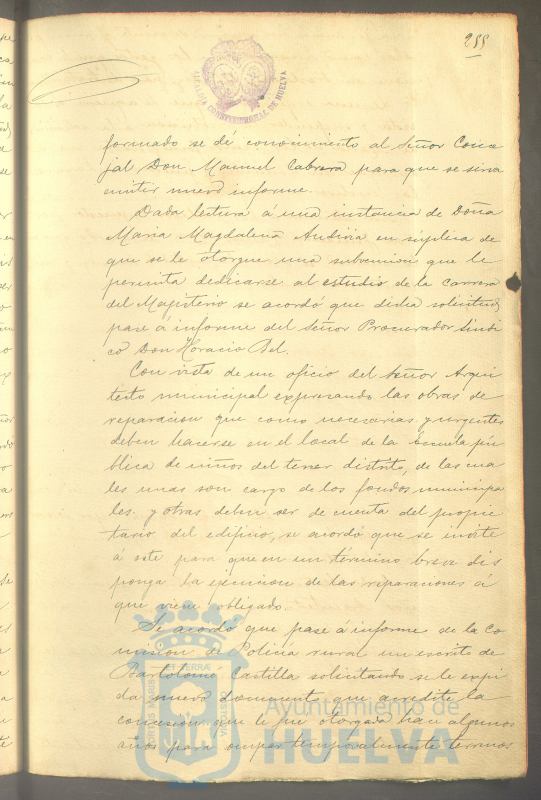 255
ALCALDIA CONSTITUCIONAL DE HUELVA
formado se dé conocimiento al Señor Conce
jal Don Manuel Cabrera para que se sirva
emitir nuevo informe.
Dada lectura á una instancia de Doña
Maria Magdalena Andivia en súplica de
que se le otorgue una subvencion que le
permita dedicarse al estudio de la carrera
del Magisterio se acordó que dicha solicitud
pase á informe del Señor Procurador Síndi
co Don Horacio Bel.
Con vista de un oficio del Señor Arqui
tecto municipal expresando las obras de
reparacion que como necesarias y urgentes
deben hacerse en el local de la Escuela pú
blica de niños del tercer distrito, de las cua
les unas son cargo de los fondos municipa
les y otras deben ser de cuenta del propie
tario del edificio, se acordó que se invite
á este para que en un término breve dis
ponga la ejecucion de las reparaciones á
que viene obligado.
Se acordó que pase á informe de la Co
mision de Policía rural un escrito de
Bartolomé Castilla solicitando se le expi
da nuevo documento que acredite la
concesion que le fue otorgada hace algunos
años para ocupar temporalmente terrenos
Ayuntamiento de
HUELVA